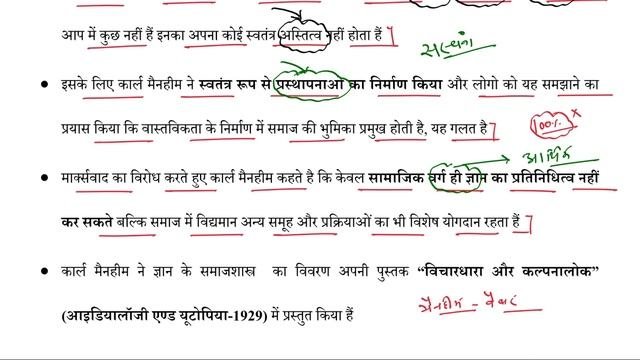 आप में कुछ नहीं हैं इनका अपना कोई स्वतंत्र अस्तित्व नहीं होता हैं
इसके लिए कार्ल मैनहीम ने स्वतंत्र रूप से प्रस्थापनाओं का निर्माण किया और लोगो को यह समझाने का
100%
प्रयास किया कि वास्तविकता के निर्माण में समाज की भुमिका प्रमुख होती है, यह गलत है
आर्थिक
मार्क्सवाद का विरोध करते हुए कार्ल मैनहीम कहते है कि केवल सामाजिक वर्ग ही ज्ञान का प्रतिनिधित्व नहीं
कर सकते बल्कि समाज में विद्यमान अन्य समूह और प्रक्रियाओं का भी विशेष योगदान रहता हैं
कार्ल मैनहीम ने ज्ञान के समाजशास्त्र का विवरण अपनी पुस्तक “विचारधारा और कल्पनालोक”
(आइडियालॉजी एण्ड यूटोपिया-1929) में प्रस्तुत किया हैं
मैनहीम - वेबर